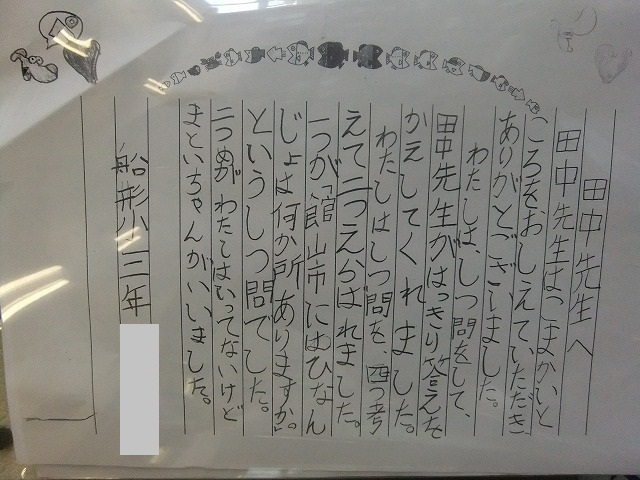 田中先生へ
田中先生はこまかいと
ころをおしえていただき
ありがとございました。
わたしは、しつ問をして、
田中先生がはっきり答えを
かえしてくれました。
わたしはしつ問を、四つ考
えて二つえらばれました。
一つが「館山市にはひなん
じょは何か所ありますか。
というしつ問でした。
二つめが わたしはいってないけど
まといちゃんがいいました。
船形小三年